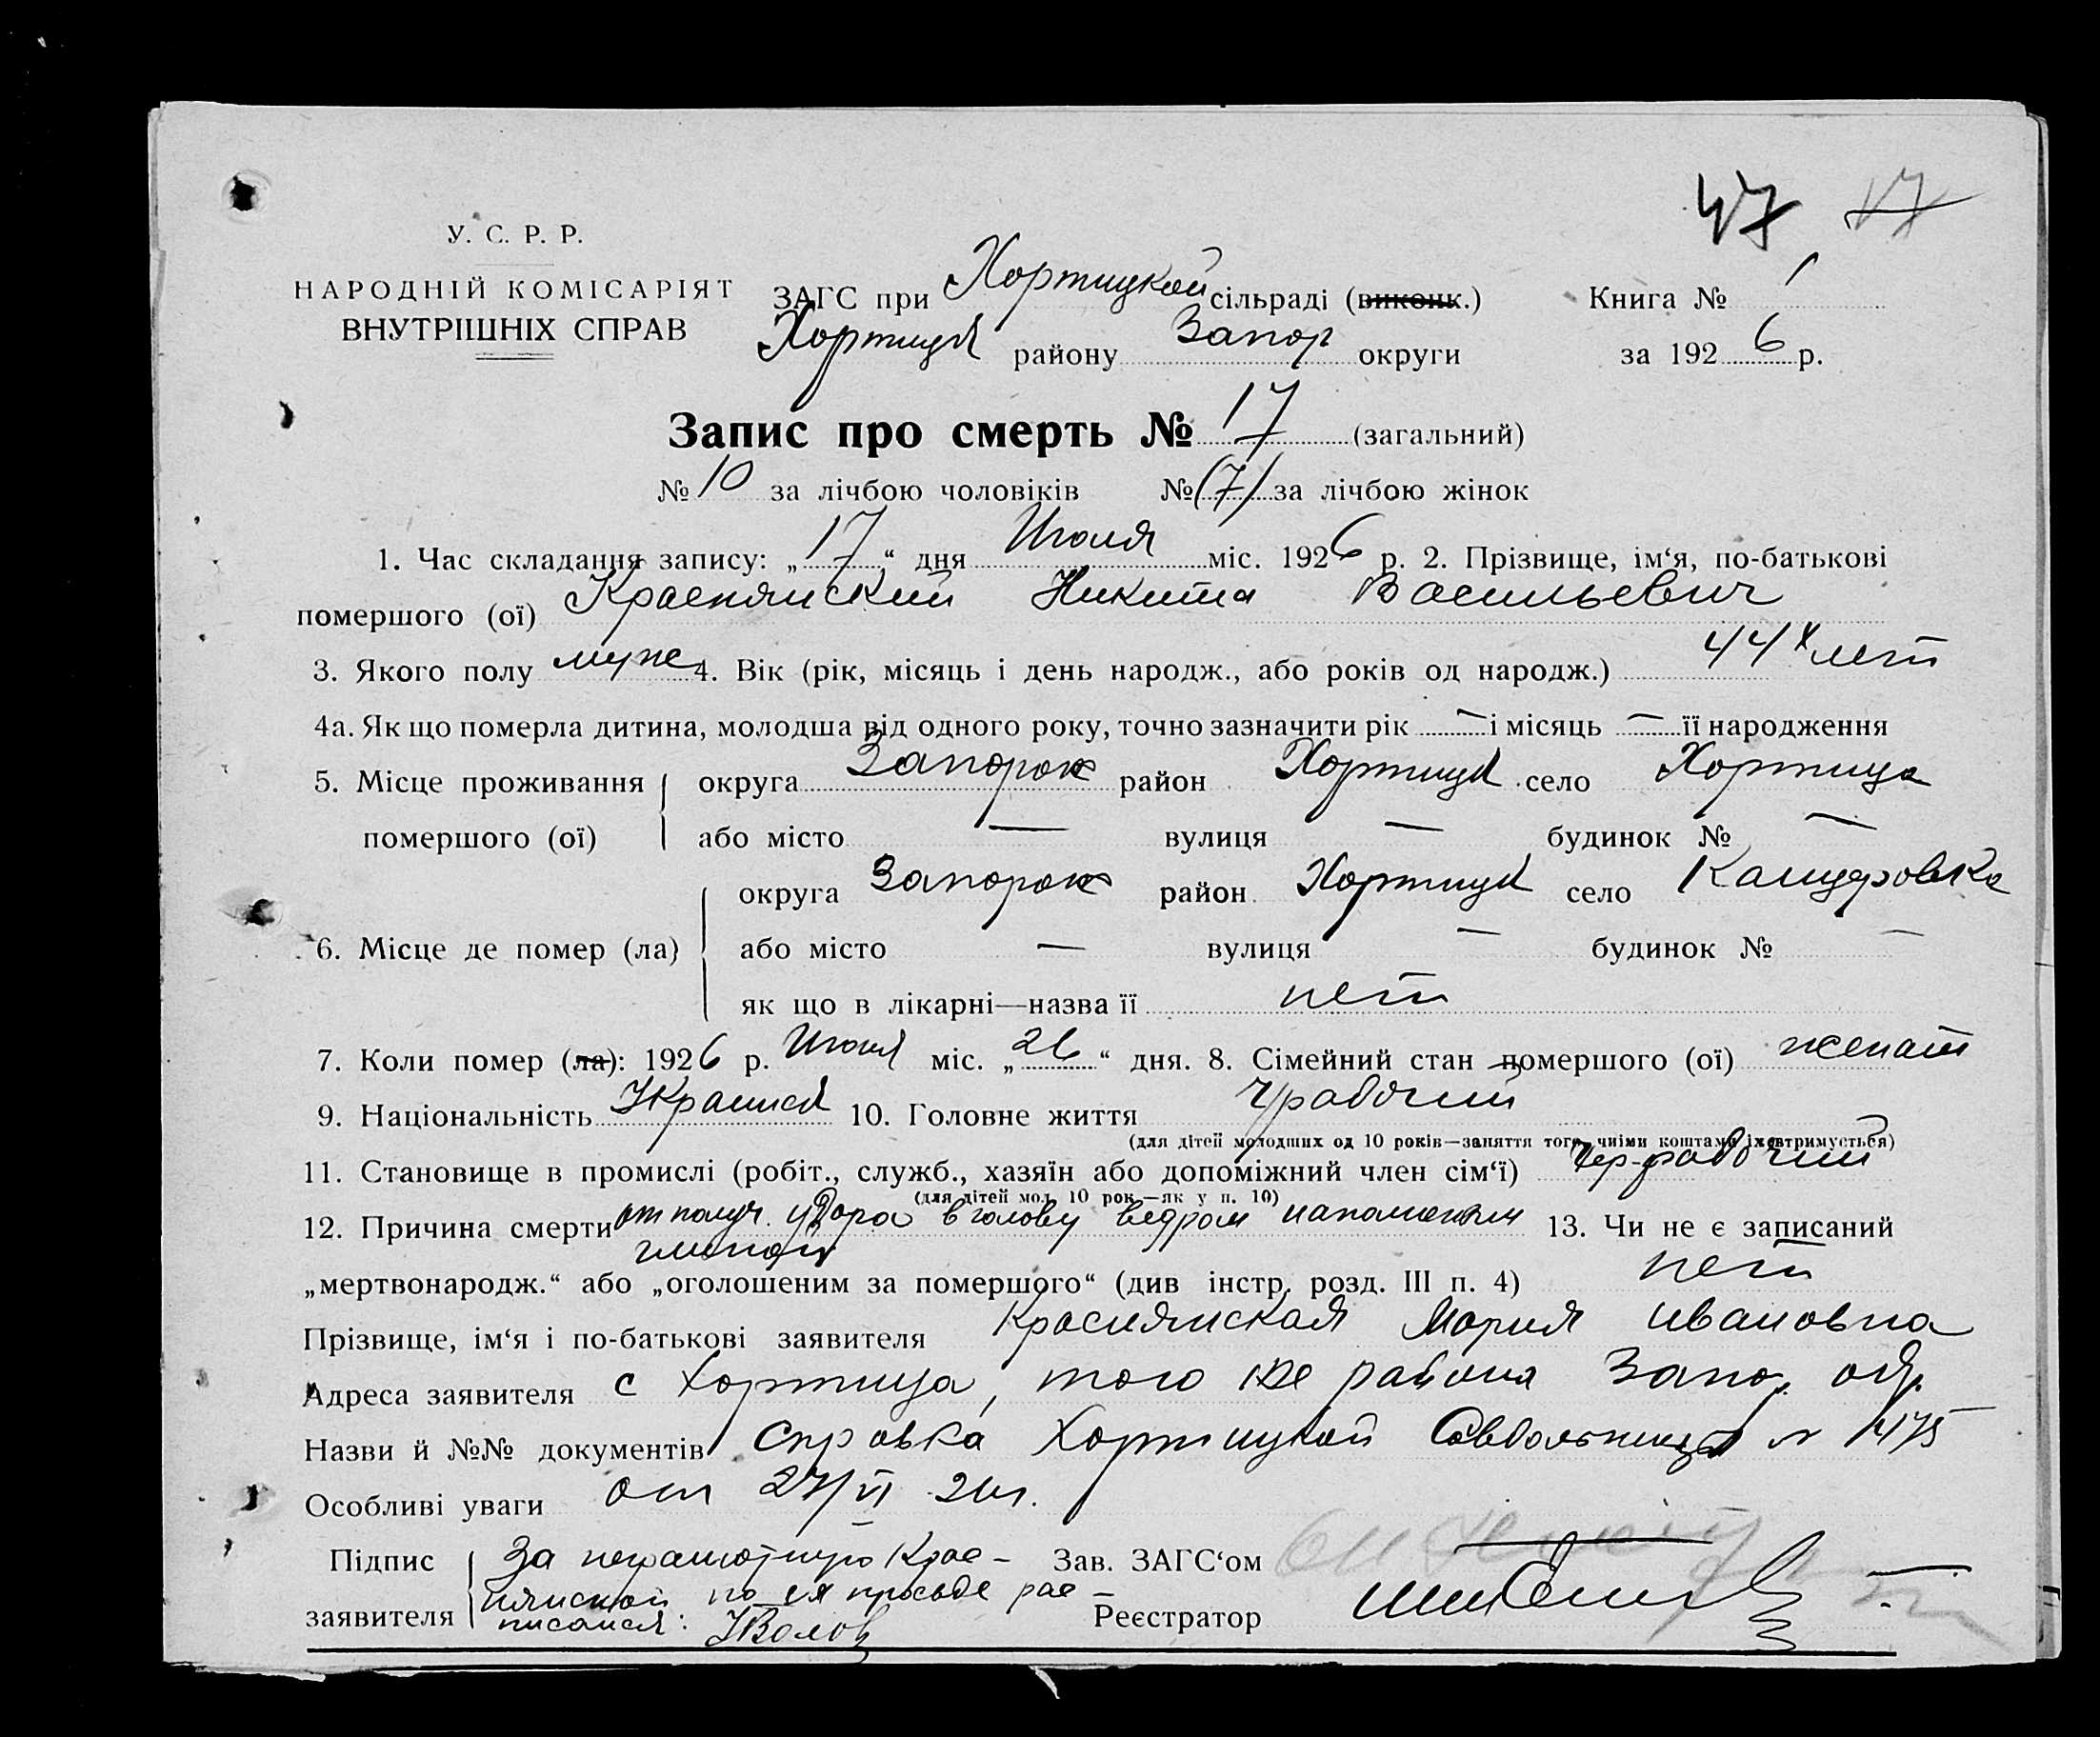 47 17
У. С. Р. Р.
НАРОДНІЙ КОМІСАРІЯТ
ВНУТРІШНІХ СПРАВ
ЗАГС при Хортицкой сільраді (виконк.)
Хортицк району Запор округи
Книга № 1
за 1926 р.
Запис про смерть № 17 (загальний)
№ 10 за лічбою чоловіків № (7) за лічбою жінок
1. Час складання запису: „17“ дня Июля міс. 1926 р. 2. Прізвище, ім‘я, по-батькові
помершого (ої) Краснянский Никита Васильевич
3. Якого полу муж 4. Вік (рік, місяць і день народж., або років од народж.) 44х лет
4а. Як що померла дитина, молодша від одного року, точно зазначити рік — і місяць — її народження
5. Місце проживання помершого (ої) округа Запорож район Хортицк село Хортица
або місто — вулиця — будинок № —
6. Місце де помер (ла) округа Запорож район Хортицк село Канцеровка
або місто — вулиця — будинок № —
як що в лікарні—назва її нет
7. Коли помер (ла): 1926 р. міс. „26“ дня. 8. Сімейний стан помершого (ої) женат
9. Національність 10. Головне життя ч/рабочий
(для дітей молодших од 10 років—заняття того, чиїми коштами їх втримується)
11. Становище в промислі (робіт., служб., хазяїн або допоміжний член сім‘ї) чер-рабочий
(для дітей мол. 10 рок.—як у п. 10)
12. Причина смерти от получ. удара в голову ведром наполненым
глиной
13. Чи не є записаний
„мертвонародж.“ або „оголошеним за помершого“ (див інстр. розд. III п. 4) нет
Прізвище, ім‘я і по-батькові заявителя Краснянская Мария Ивановна
Адреса заявителя с Хортица, того же района Запор. окр.
Назви й №№ документів Справка Хортицкой Совбольницы № 1475
Особливі уваги от 27/VI 26г.
Підпис заявителя За неграмотную Крас-
нянской по ея просьбе рас-
писался:
Зав. ЗАГС‘ом
Реєстратор